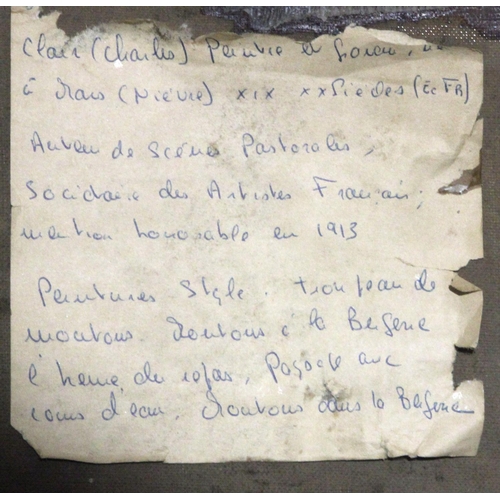 Clair (Charles) Peintre et Graveur, né
à Mars (Nièvre) XIX XX Siècles (Ec FR)
Auteur de Scènes Pastorales,
Sociétaire des Artistes Français;
mention honorable en 1913
Peintures Style. troupeau de
moutons. Moutons à la Bergerie
l'heure du repas, Paysage avec
cours d'eau. Moutons dans la Bergerie